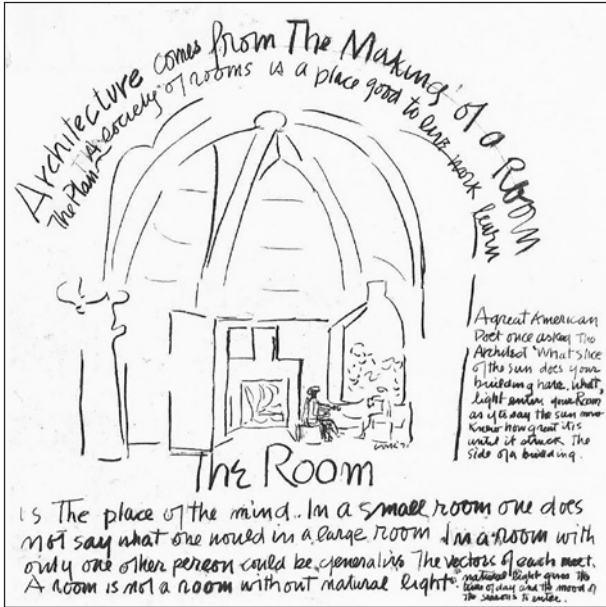 Architecture comes from The Making of a Room
The Plan A society of rooms is a place good to live work learn
A great American
Poet once asked The
Architect 'What slice
of the sun does your
building have. What
light enters your Room
as if to say the sun never
knew how great it is
until it struck the
side of a building.
The Room
is The place of the mind. In a small room one does
not say what one would in a large room. In a room with
only one other person could be generative The vectors of each meet.
A room is not a room without natural light.
natural light gives the
time of day and the mood of
the seasons to enter.